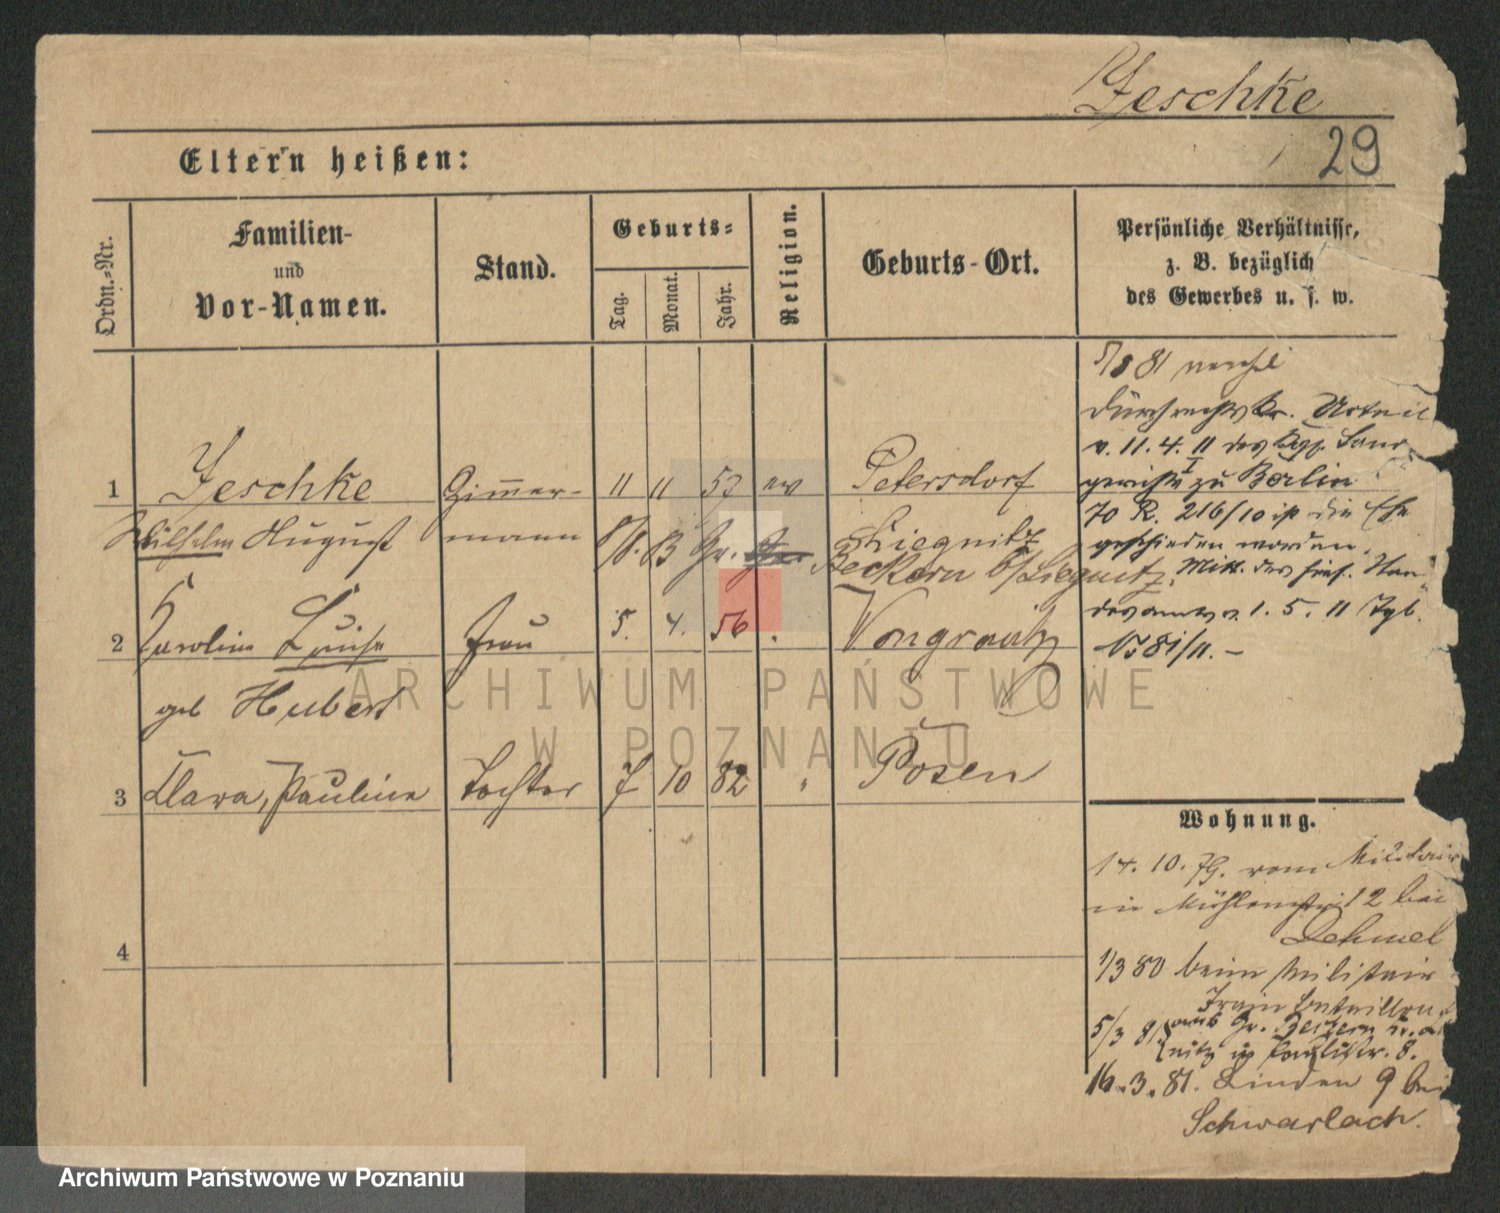 Jeschke
29
Eltern heißen:
Ordn.-Nr.
Familien-
und
Vor-Namen.
Stand.
Geburts-
Tag.
Monat.
Jahr.
Religion.
Geburts-Ort.
Persönliche Verhältnisse,
z. B. bezüglich
des Gewerbes u. s. w.
5/8 81
durch rechtskr. Urteil
v. 11. 4. 11 des Kgl. Land
gerichts I zu Berlin
70 R. 216/10 ist die Ehe
geschieden worden.
Mitt. des
1. 5. 11 Tgb.
81/11. –
1 Jeschke Zimmer- 11 11 53 ev Petersdorf
Wilhelm August mann Liegnitz
Beckern b/Liegnitz
2 Karoline Luise Frau 5. 4. 56 Wongrowitz
geb Hubert
3 Clara, Pauline Tochter 7 10 82 " Posen
4
Wohnung.
14. 10. 79. vom Militair
in Mühlenstr 12 bei
Dehmel
1/3 80 beim Militair
Train Bataillon
5/3 81 aus Gr. Beckern
8.
16. 3. 81. Linden 9 bei
Schwarlach.
ARCHIWUM PAŃSTWOWE
W POZNANIU
Archiwum Państwowe w Poznaniu